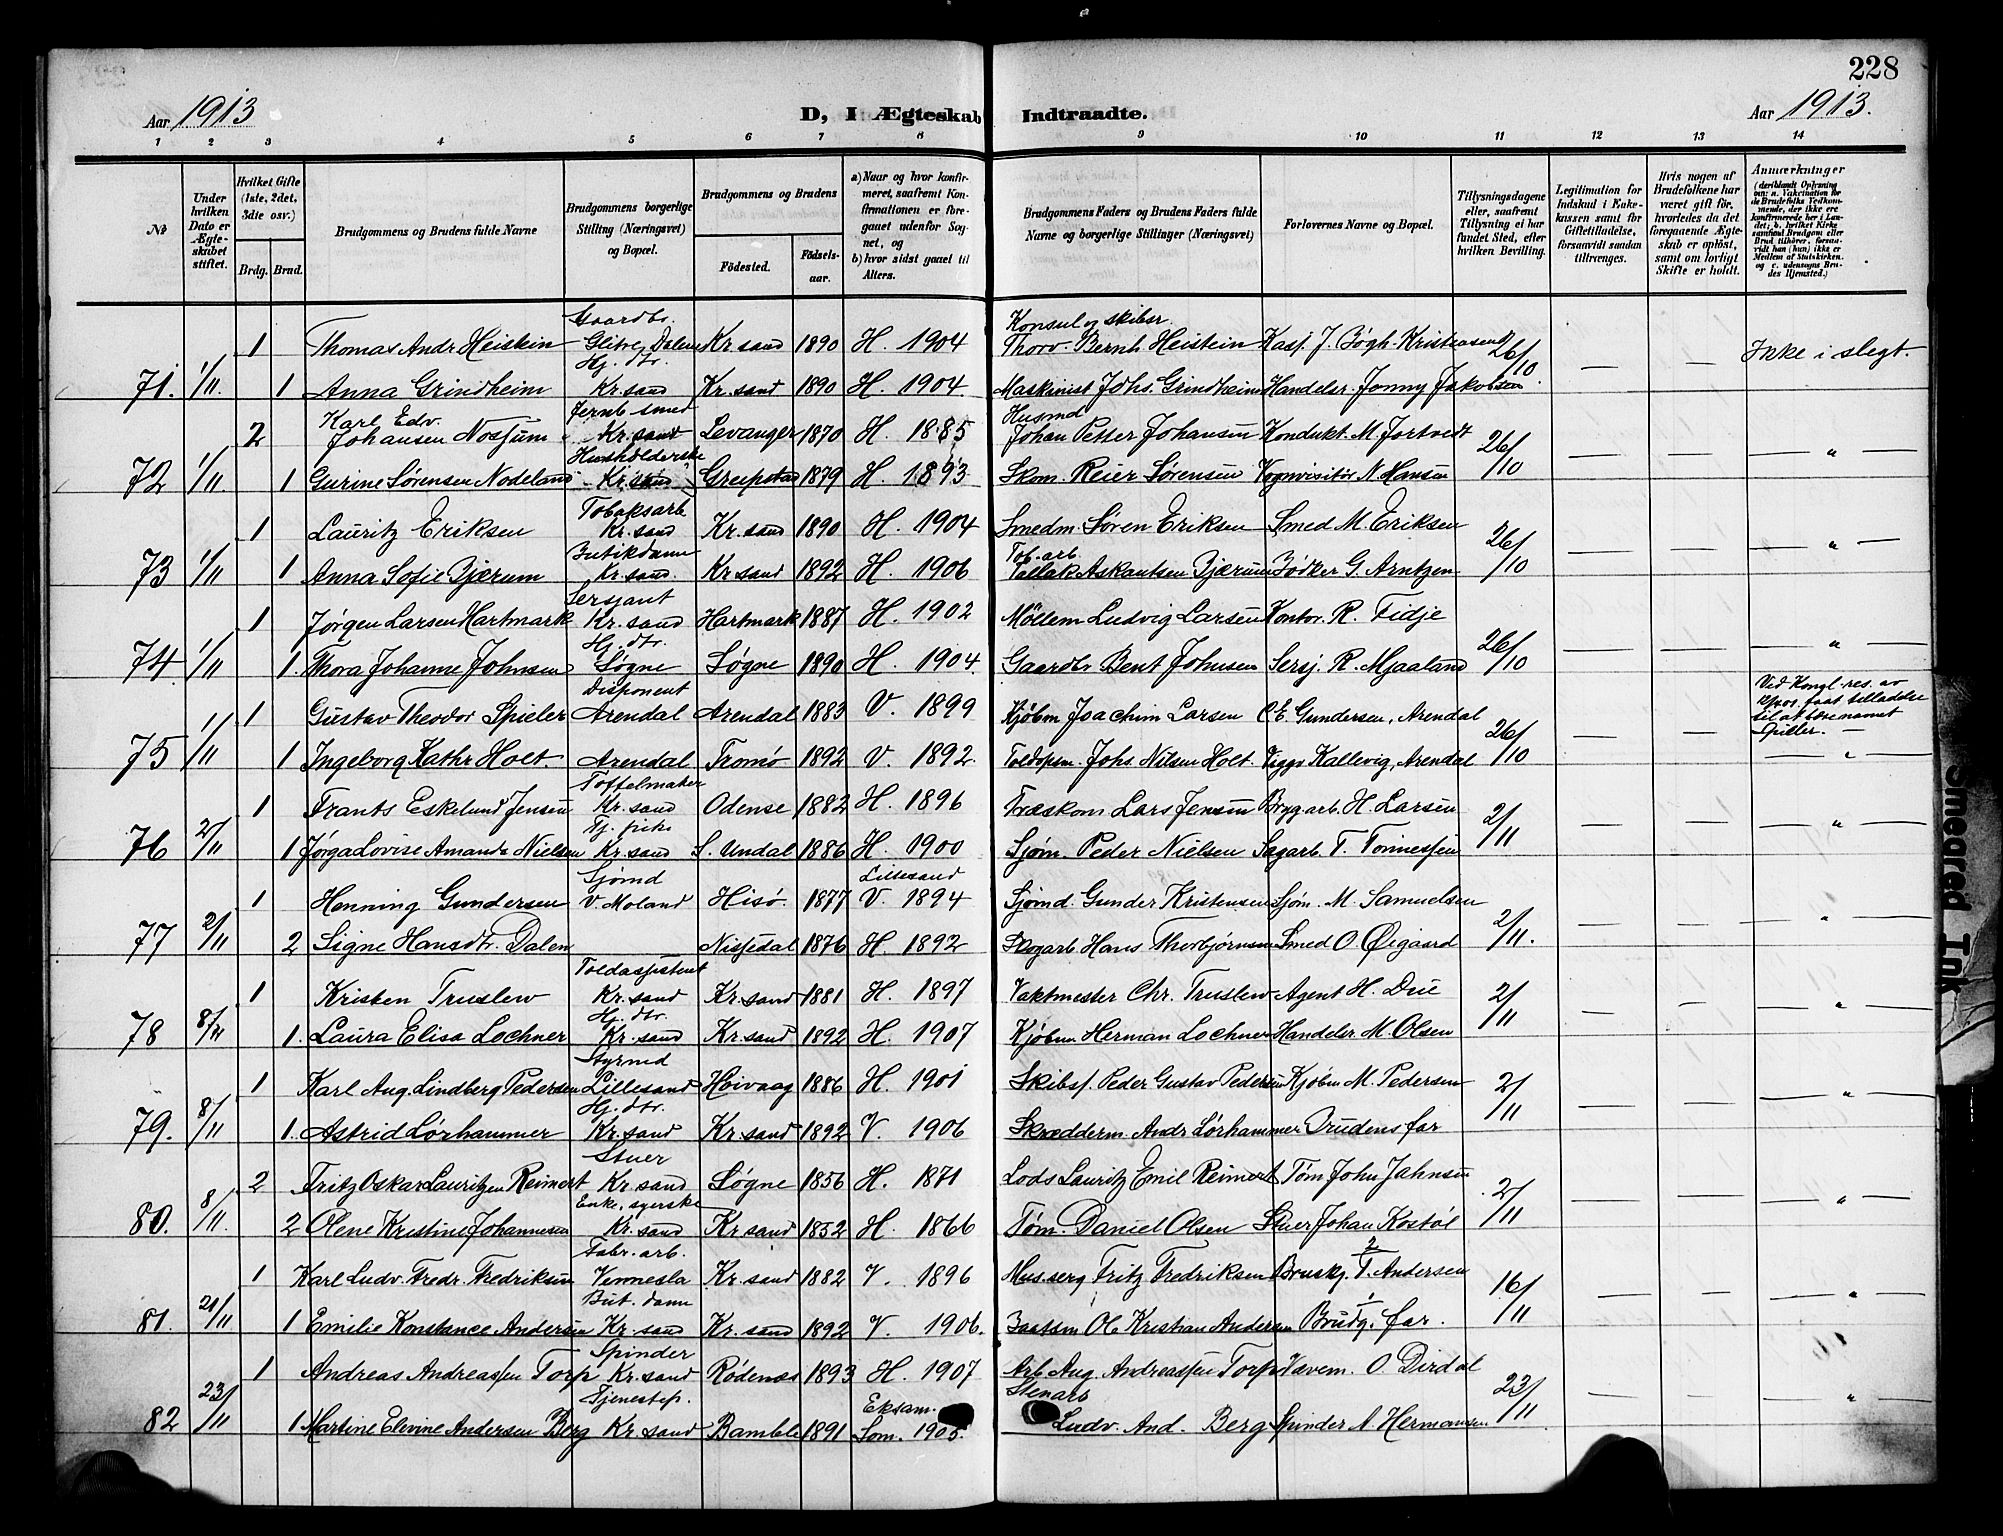 228
Aar 1913
D, I Ægteskab Indtraadte.
Aar 1913.
1 2 3 4 5 6 7 8 9 10 11 12 13 14
No
Under hvilken Dato er Ægteskabet stiftet.
Hvilket Gifte (1ste, 2det, 3die osv.)
Brdg. Brud.
Brudgommens og Brudens fulde Navne
Brudgommens borgerlige Stilling (Næringsvei) og Bopæl.
Brudgommens og Brudens
Födested. Födselsaar.
a) Naar og hvor konfirmeret, saafremt Konfirmationen er foregaaet udenfor Sognet, og
b) hvor sidst gaaet til Alters.
Brudgommens Faders og Brudens Faders fulde Navne og borgerlige Stillinger (Næringsvei)
Forlovernes Navne og Bopæl.
Tillysningsdagene eller, saafremt Tillysning ei har fundet Sted, efter hvilken Bevilling.
Legitimation for Indskud i Enkekassen samt for Giftetilladelse, forsaavidt saadan tiltrænges.
Hvis nogen af Brudefolkene har været gift för, hvorledes da det foregaaende Ægteskab er oplöst, samt om lovligt Skifte er holdt.
Anmærkninger
(deriblandt Oplysning om: a. Vakcination for de Brudefolks Vedkommende, der ikke ere konfirmerede her i Landet; b. hvilket Kirkesamfund Brudgom eller Brud tilhörer, forsaavidt han (hun) ikke er Medlem af Statskirken, og c. udensogns Brudes Hjemsted.)
Gaardbr. Konsul og skibsr.
1 Thomas Andr Heistein Glitre, Dalene Kr.sand 1890 H. 1904 Thorv. Bernh Heistein Kasp. J. Bögh-Kristensen 26/10 — — Ikke i slegt.
Hj. dtr.
71. 1/11 1 Anna Grindheim Kr.sand Kr.sand 1890 H. 1904. Maskinist Johs. Grindheim Handelsr. Jonny Jakobsen
Karl Edv. Jernb smed Husmd
2 Johansen Nossum Kr.sand Levanger 1870 H. 1885 Johan Petter Johansen Kondukt. M. Jortvedt 26/10 — — "
Husholderske
72 1/11. 1 Gurine Sørensen Nodeland Kr.sand Greipstad 1879 H. 1893 Skom. Reier Sørensen Vognvisitør N Hansen
Tobaksarb
1 Lauritz Eriksen Kr.sand Kr.sand 1890 H. 1904 Smedm. Søren Eriksen Smed M. Eriksen 26/10 — — "
Butikdame Tob. arb.
73 1/11 1 Anna Sofie Bjærum Kr.sand. Kr.sand 1892 H. 1906 Tallak Askautsen Bjærum Bødker G. Arntzen
Sersjant
1 Jørgen Larsen Hartmark Kr.sand Hartmark 1887 H. 1902 Möllem Ludvig Larsen Kontor. R. Tidje 26/10 — — "
Hj. dtr.
74 1/11 1. Thora Johanne Johnsen Søgne Søgne 1890 H. 1904. Gaardbr Bent Johnsen Sersj. R. Mjaaland
Disponent Ved Kongl. res. av
1 Gustav Theodor Spieler Arendal Arendal 1883 V. 1899 Kjøbm Joachim Larsen C. E. Gundersen, Arendal 26/10 — — faat tilladelse til at bære navnet Spiller. —
75 1/11 1 Ingeborg Kathr Holt. Arendal Tromø 1892 V. 1892. Toldopsm. Johs Nilsen Holt. Viggo Kallevig, Arendal "
Toffelmaker
1 Frants Eskelund Jensen Kr.sand Odense 1882 H. 1896 Træskom Lars Jensen Brygarb. H. Larsen 2/11 — — "
Tj. pike
76 2/11 1 Jørga Lovise Amanda Nielsen Kr.sand S. Undal 1886 H. 1900 Sjøm. Peder Nielsen Sagarb. T. Tønnessen
Sjømd Lillesand
1 Henning Gundersen V. Moland Hisø. 1877 V. 1894 Sjømd Gunder Kristensen Sjøm. M. Samuelsen 2/11. — — "
77 2/11 2 Signe Hansdtr. Dalen Nissedal 1876 H. 1892 Skogarb Hans Thorbjørnsen Smed O. Øigaard
Toldassistent
1 Kristen Truslew Kr.sand Kr.sand 1881 H. 1897 Vaktmester Chr. Truslew Agent H. Due 2/11 — — "
Hj. dtr.
78 8/11 1. Laura Elisa Lochner Kr.sand Kr.sand 1892 H. 1907 Kjøbm Herman Lochner Handelsr M. Olsen
Styrmd
1 Karl Aug. Lindberg Pedersen Lillesand Høivaag 1886 H. 1901 Skibsf. Peder Gustav Pedersen Kjøbm M. Pedersen 2/11 — — "
Hj. dtr.
79. 8/11 1. Astrid Lørhammer Kr.sand Kr.sand 1892 V. 1906 Skrædderm Andr Lørhammer Brudens far
Stuer
2 Fritz Oskar Lauritzen Reimert Kr.sand Søgne 1856 H. 1871 Lods Lauritz Emil Reimert Tøm John Jahnsen 2/11 — — "
Enke, syerske
80. 8/11. 2 Olene Kristine Johannesen Kr.sand Kr.sand 1852 H. 1866 Tøm. Daniel Olsen Stuer Johan Kostøl
Fabr. arb. 2
1 Karl Ludv. Fredr. Fredriksen Vennesla Kr.sand 1882 V. 1896 Mus.serg Fritz Fredriksen Bruskj. T. Andersen 16/11 — — "
But. dame 1
81. 21/11 1 Emilie Konstance Andersen Kr.sand Kr.sand 1892 V. 1906. Baatsm Ole Kristian Andersen Brudg. far.
Spinder
1 Andreas Andreassen Torp Kr.sand Rødenæs 1893 H. 1907 Arb Aug. Andreassen Torp Vævem. O. Dirdal 23/11 — — "
Tjenestep. Eksam. Stenarb
82 23/11 1 Martine Elevine Andersen Berg Kr.sand Bamble 1891 Som. 1905. Ludv. And. Berg Spinder A. Hermansen
Smeared Ink